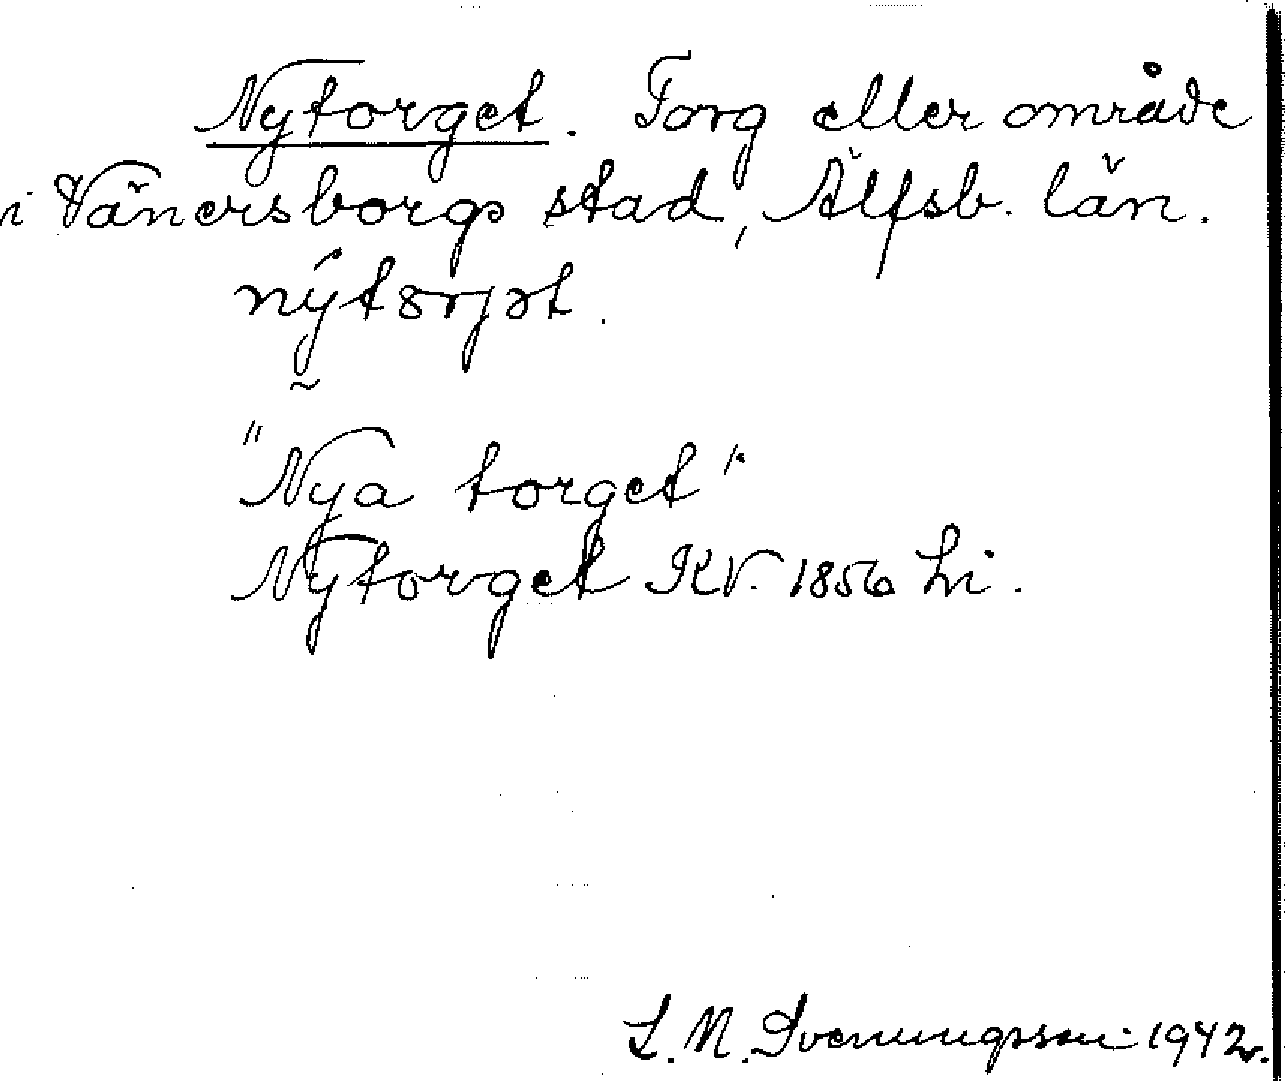 Nytorget. Torg eller område
i Vänersborgs stad, Älfsb. län.
nýtorjət.
"Nya torget"
Nytorget KV. 1856 Li.
L. M. Svenungsson 1942.